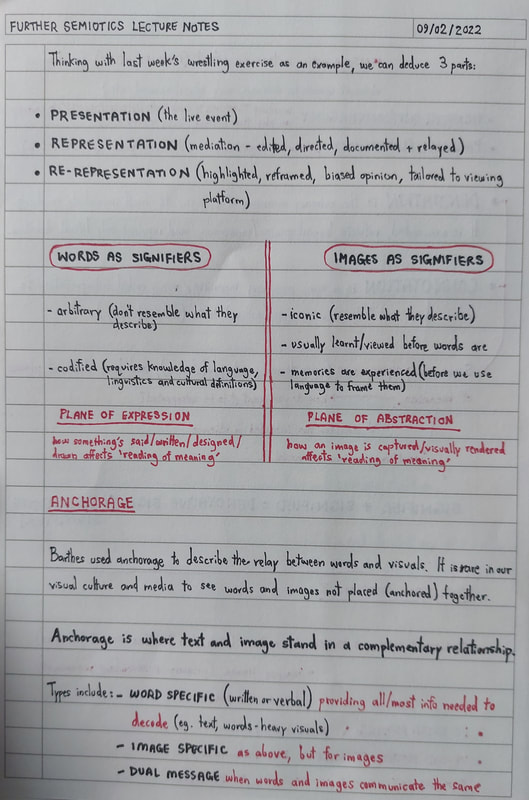 FURTHER SEMIOTICS LECTURE NOTES
09/02/2022
Thinking with last week's wrestling exercise as an example, we can deduce 3 parts:
• PRESENTATION (the live event)
• REPRESENTATION (mediation - edited, directed, documented + relayed)
• RE-REPRESENTATION (highlighted, reframed, biased opinion, tailored to viewing
platform)
WORDS AS SIGNIFIERS
- arbitrary (don't resemble what they
describe)
- codified (requires knowledge of language,
linguistics and cultural definitions)
PLANE OF EXPRESSION
how something's said/written/designed/
drawn affects 'reading of meaning'
IMAGES AS SIGNIFIERS
- iconic (resemble what they describe)
- usually learnt/viewed before words are
- memories are experienced (before we use
language to frame them)
PLANE OF ABSTRACTION
how an image is captured/visually rendered
affects 'reading of meaning'
ANCHORAGE
Barthes used anchorage to describe the relay between words and visuals. It is rare in our
visual culture and media to see words and images not placed (anchored) together.
Anchorage is where text and image stand in a complementary relationship.
Types include: - WORD SPECIFIC (written or verbal) providing all/most info needed to
decode (eg. text, words-heavy visuals)
- IMAGE SPECIFIC as above, but for images
- DUAL MESSAGE when words and images communicate the same